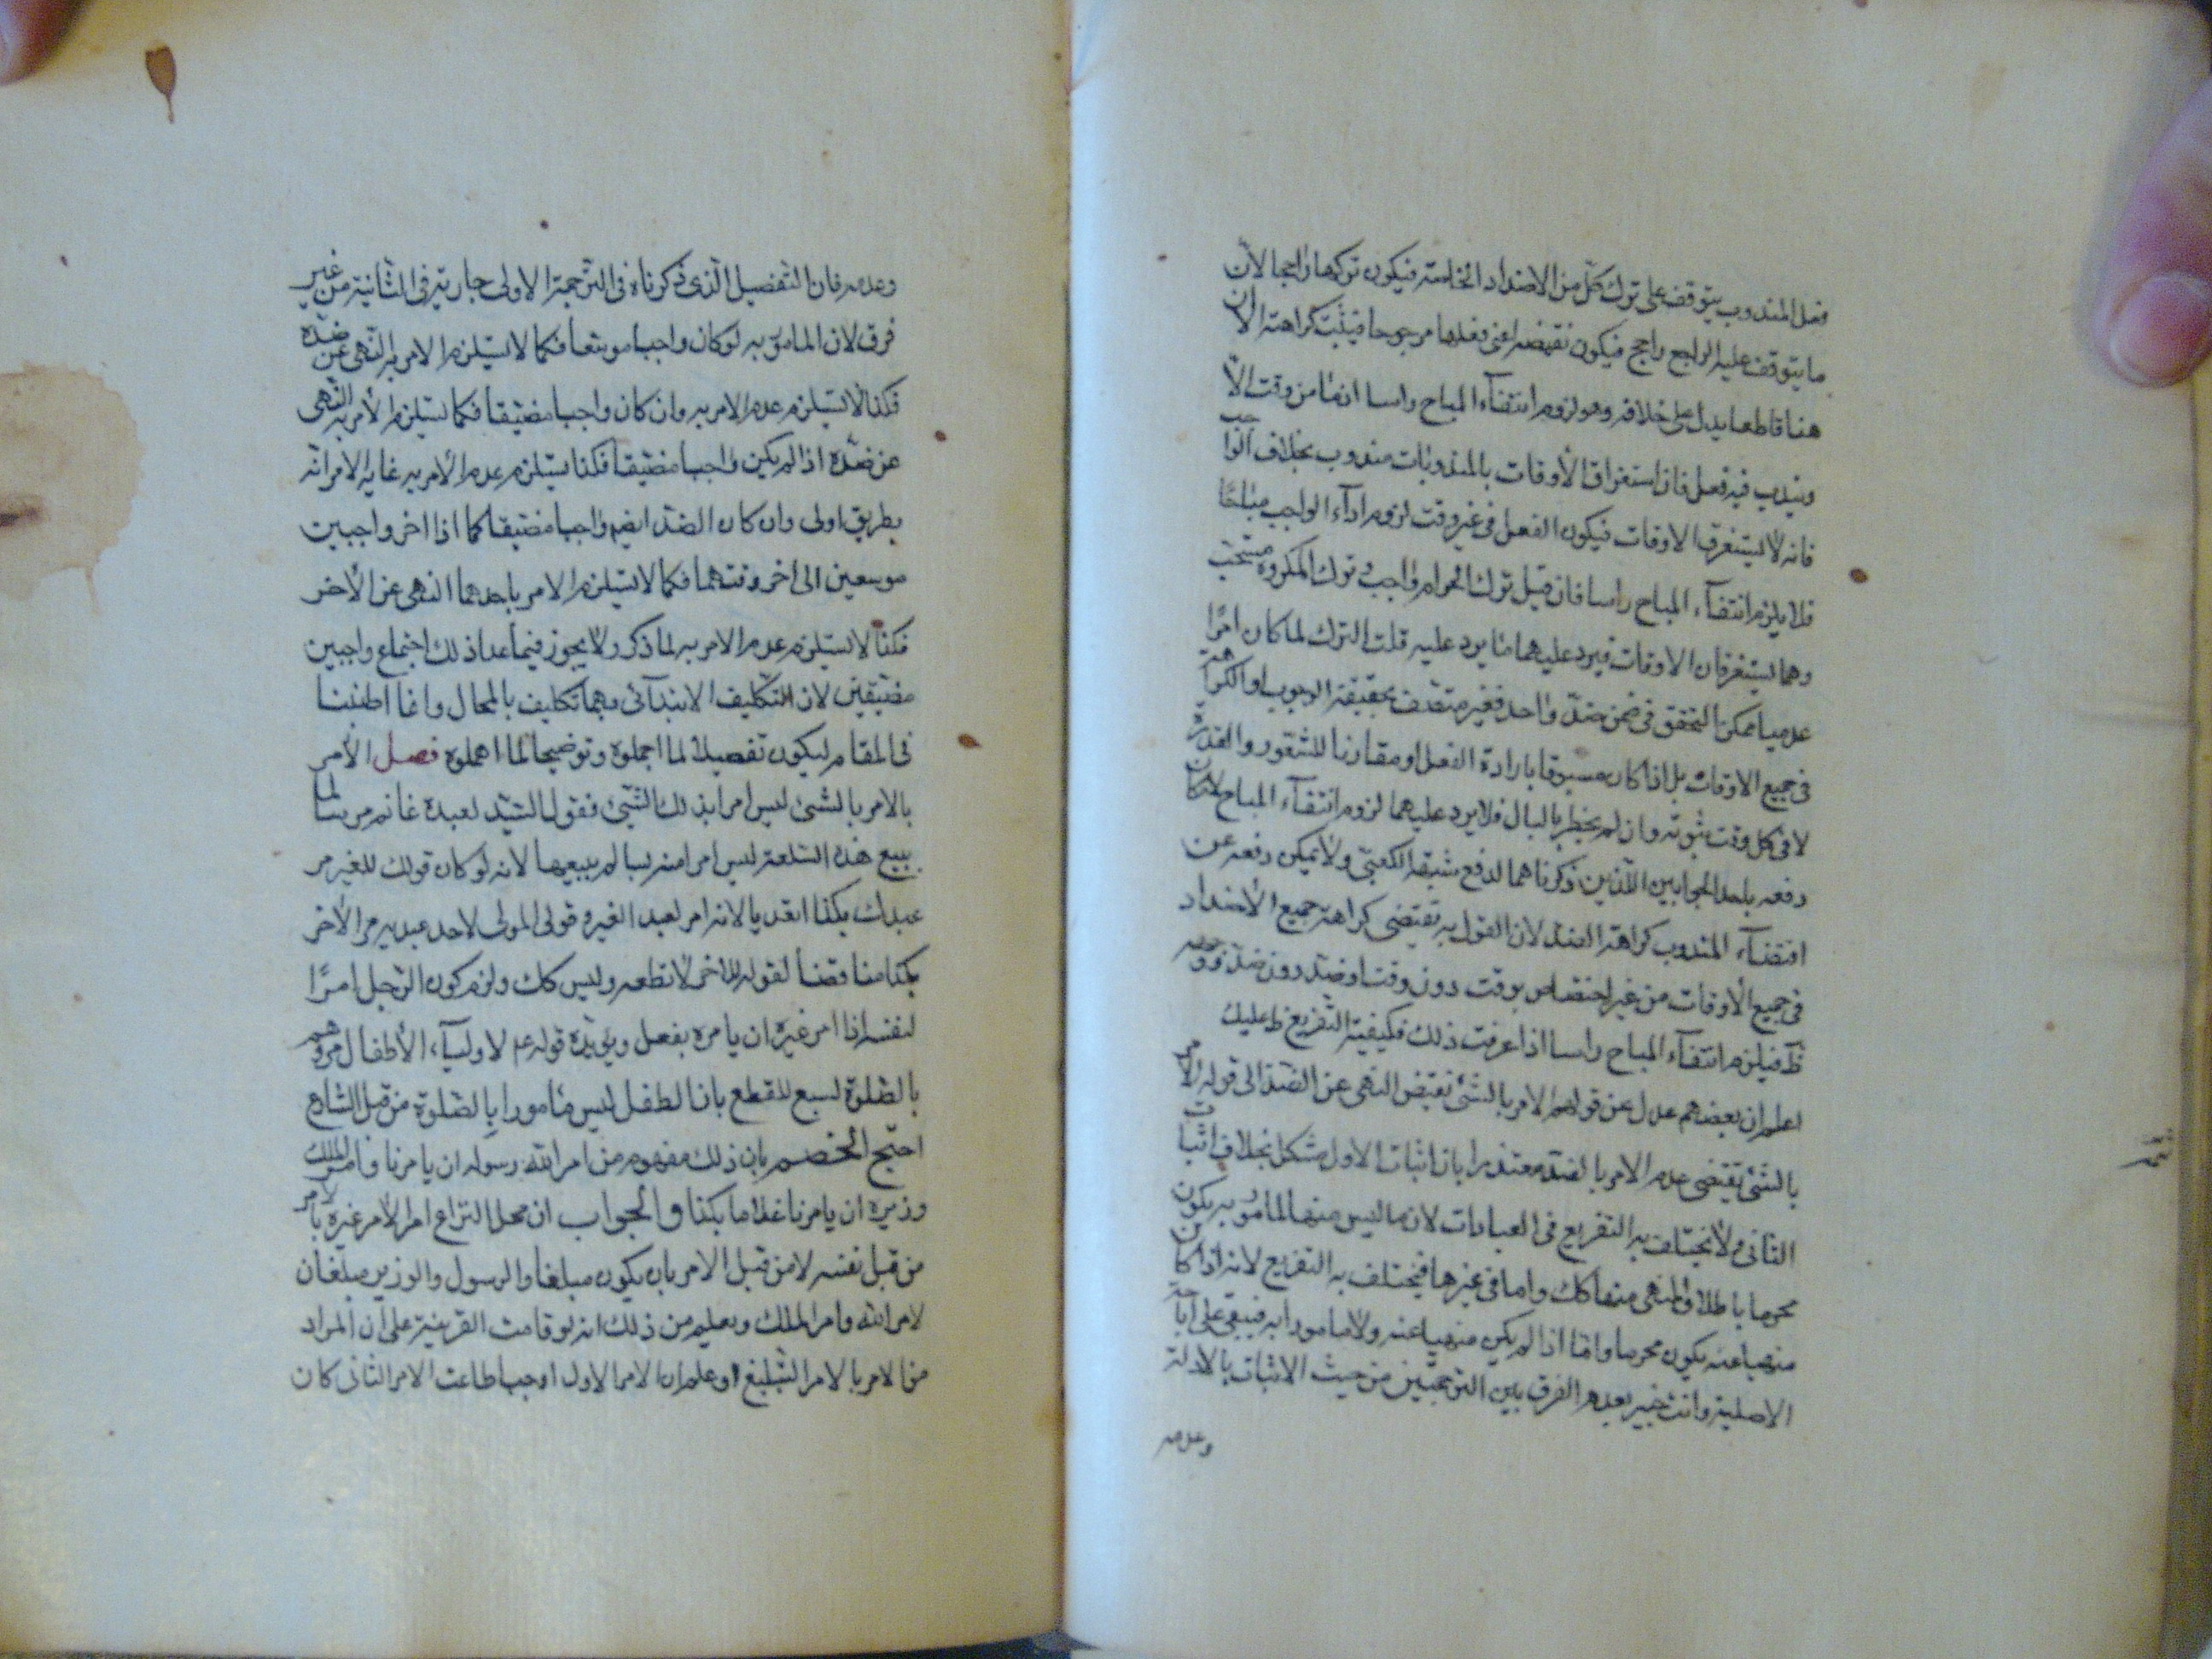 فعل المندوب يتوقف على ترك كل من الاضداد الخاصة فيكون تركها راجحا لان
ما يتوقف عليه الراجح راجح فيكون نقيضه اعنى فعلها مرجوحا فيثبت كراهته الا ان
هنا قاطعا يدل على خلافه وهو لزوم انتفاء المباح راسا اذ ما من وقت الا
ويندب فيه فعل فان استغراق الأوقات بالمندوبات مندوب بخلاف الواجب
فانه لا يستغرق الاوقات فيكون الفعل فى غير وقت لزوم اداء الواجب مباحًا
فلا يلزم انتفاء المباح راسا فان قيل ترك الحرام واجب وترك المكروه مستحب
وهما يستغرقان الاوقات فيرد عليهما ما يرد عليه قلت الترك لما كان امرًا
عدميا ممكن التحقق فى ضمن ضد واحد فغير متصف بحقيقة الوجوب او الكراهة
فى جميع الاوقات بل اذا كان مسبوقا بارادة الفعل او مقارنا للشعور والقدرة
لا فى كل وقت ثبوته وان لم يخطر بالبال فلا يرد عليهما لزوم انتفاء المباح لامكان
دفعه باحد الجوابين اللذين ذكرناهما لدفع شبهة الكعبى ولا يمكن دفعه عن
اقتضاء المندوب كراهة الضد لان القول به يقتضى كراهة جميع الاضداد
فى جميع الأوقات من غير اختصاص بوقت دون وقت او ضد دون ضد
فيلزم انتفاء المباح راسا اذا عرفت ذلك فكيفية التفريع ظ عليك
اعلم ان بعضهم عدل عن قولهم الامر بالشئ يقتضى النهى عن الضد الى قوله الامر
بالشئ يقتضى عدم الامر بالضد معتذرا بان اثبات الاول مشكل بخلاف اثبات
الثانى ولا يختلف به التفريع فى العبادات لان ما ليس منها المامور به يكون
محرما باطلا والمنهى منها كك واما فى غيرها فيختلف به التفريع لانه اذا كان
منهيا عنه يكون محرما واما اذا لم يكن منهيا عنه ولا مامورا به فيبقى على اباحته
الاصلية وانت خبير بعدم الفرق بين الترجمتين من حيث الاثبات بالادلة
وعدمه
وعدمه فان التفصيل الذى ذكرناه فى الترجمة الاولى جارية فى الثانية من غير
فرق لان المامور به لو كان واجبا موسعا فكما لا يستلزم الامر به النهى عن ضده
فكذا لا يستلزم عدم الامر به وان كان واجبا مضيقا فكما يستلزم الأمر به النهى
عن ضده اذا لم يكن واجبا مضيقا فكذا يستلزم عدم الأمر به غاية الامر انه
بطريق اولى وان كان الضد ايضم واجبا مضيقا كما اذا اخر واجبين
موسعين الى اخر وقتهما فكما لا يستلزم الامر باحدهما النهى عن الأخر
فكذا لا يستلزم عدم الامر به لما ذكر ولا يجوز فيما عدا ذلك اجتماع واجبين
مضيقين لان التكليف الابتدائى بهما تكليف بالمحال وانما اطنبنا
فى المقام ليكون تفصيلا لما اجملوه وتوضيحا لما اهملوه فصل الأمر
بالامر بالشئ ليس امرا بذلك الشئ فقول السيد لعبده غانم مر سالما
ببيع هذه السلعة ليس امرا منه لسالم ببيعها لانه لو كان قولك للغير مر
عبدك بكذا تعديا لانه امر لعبد الغير وقول المولى لاحد عبديه مر الأخر
بكذا مناقضا لقوله للاخر لا تطعه وليس كك ولزم كون الرجل امرًا
لنفسه اذا امر غيره ان يامره بفعل ويؤيده قوله عم لاولياء الأطفال مروهم
بالصلوة لسبع للقطع بان الطفل ليس مامورا بالصلوة من قبل الشارع
احتج الخصم بان ذلك مفهوم من امر الله رسوله ان يامرنا وامر الملك
وزيره ان يامرنا غلاما بكذا والجواب ان محل النزاع امر الأمر غيره بامر
من قبل نفسه لا من قبل الامر بان يكون مبلغا والرسول والوزير مبلغان
لامر الله وامر الملك ويعلم من ذلك انه لو قامت القرينة على ان المراد
من الامر بالامر التبليغ او علم ان الامر الاول اوجب اطاعة الامر الثانى كان